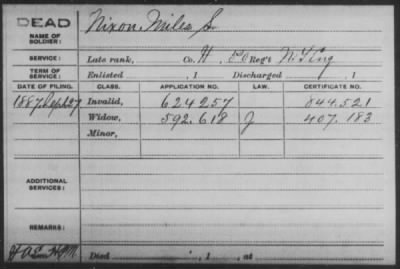 DEAD Nixon, Miles S.
NAME OF SOLDIER:
SERVICE: Late rank, Co. H, 50 Reg't N.Y. Eng
TERM OF SERVICE: Enlisted , 1 Discharged , 1
DATE OF FILING. CLASS. APPLICATION NO. LAW. CERTIFICATE NO.
1887 Sept 27 Invalid, 624257 844.521
Widow, 592.618 J 407.183
Minor,
ADDITIONAL SERVICES:
REMARKS:
Died , 1 , at